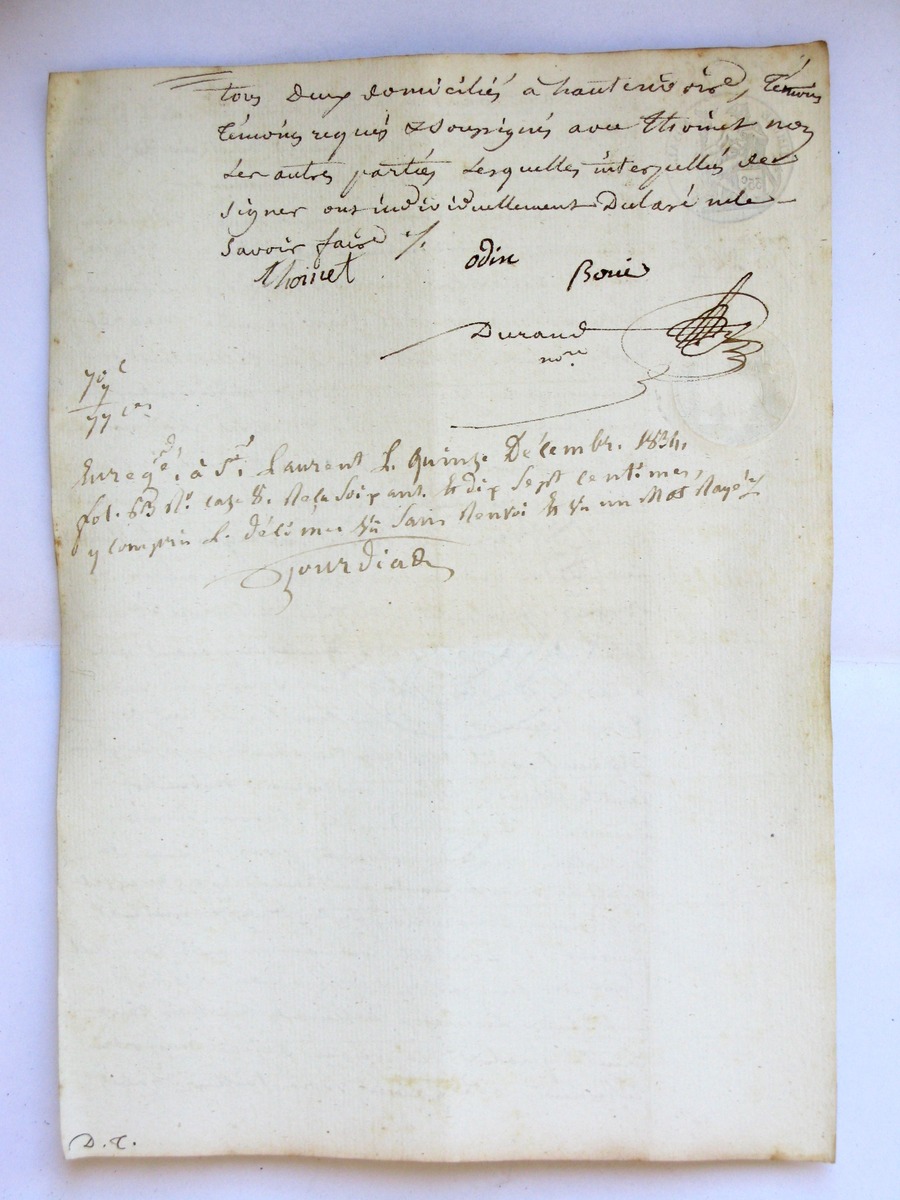 tous deux domiciliés à hauterivoire, Témoins
témoins requis & soussignés avec Thoinet non
Les autres parties Lesquelles interpellées de
signer ont individuellement Déclaré ne le
Savoir faire ./.
Thoinet odin Borie
Durand
nore
70 c
7
77 ces
Enregé. à St. Laurent L. quinze Décembr. 1834.
fol. 63 Ro. case 8. Reçu Soixant. & dix Sept centimes
y compris L. décime Sans Renvoi & un Mot Rayé
Jourdiad
D. T.